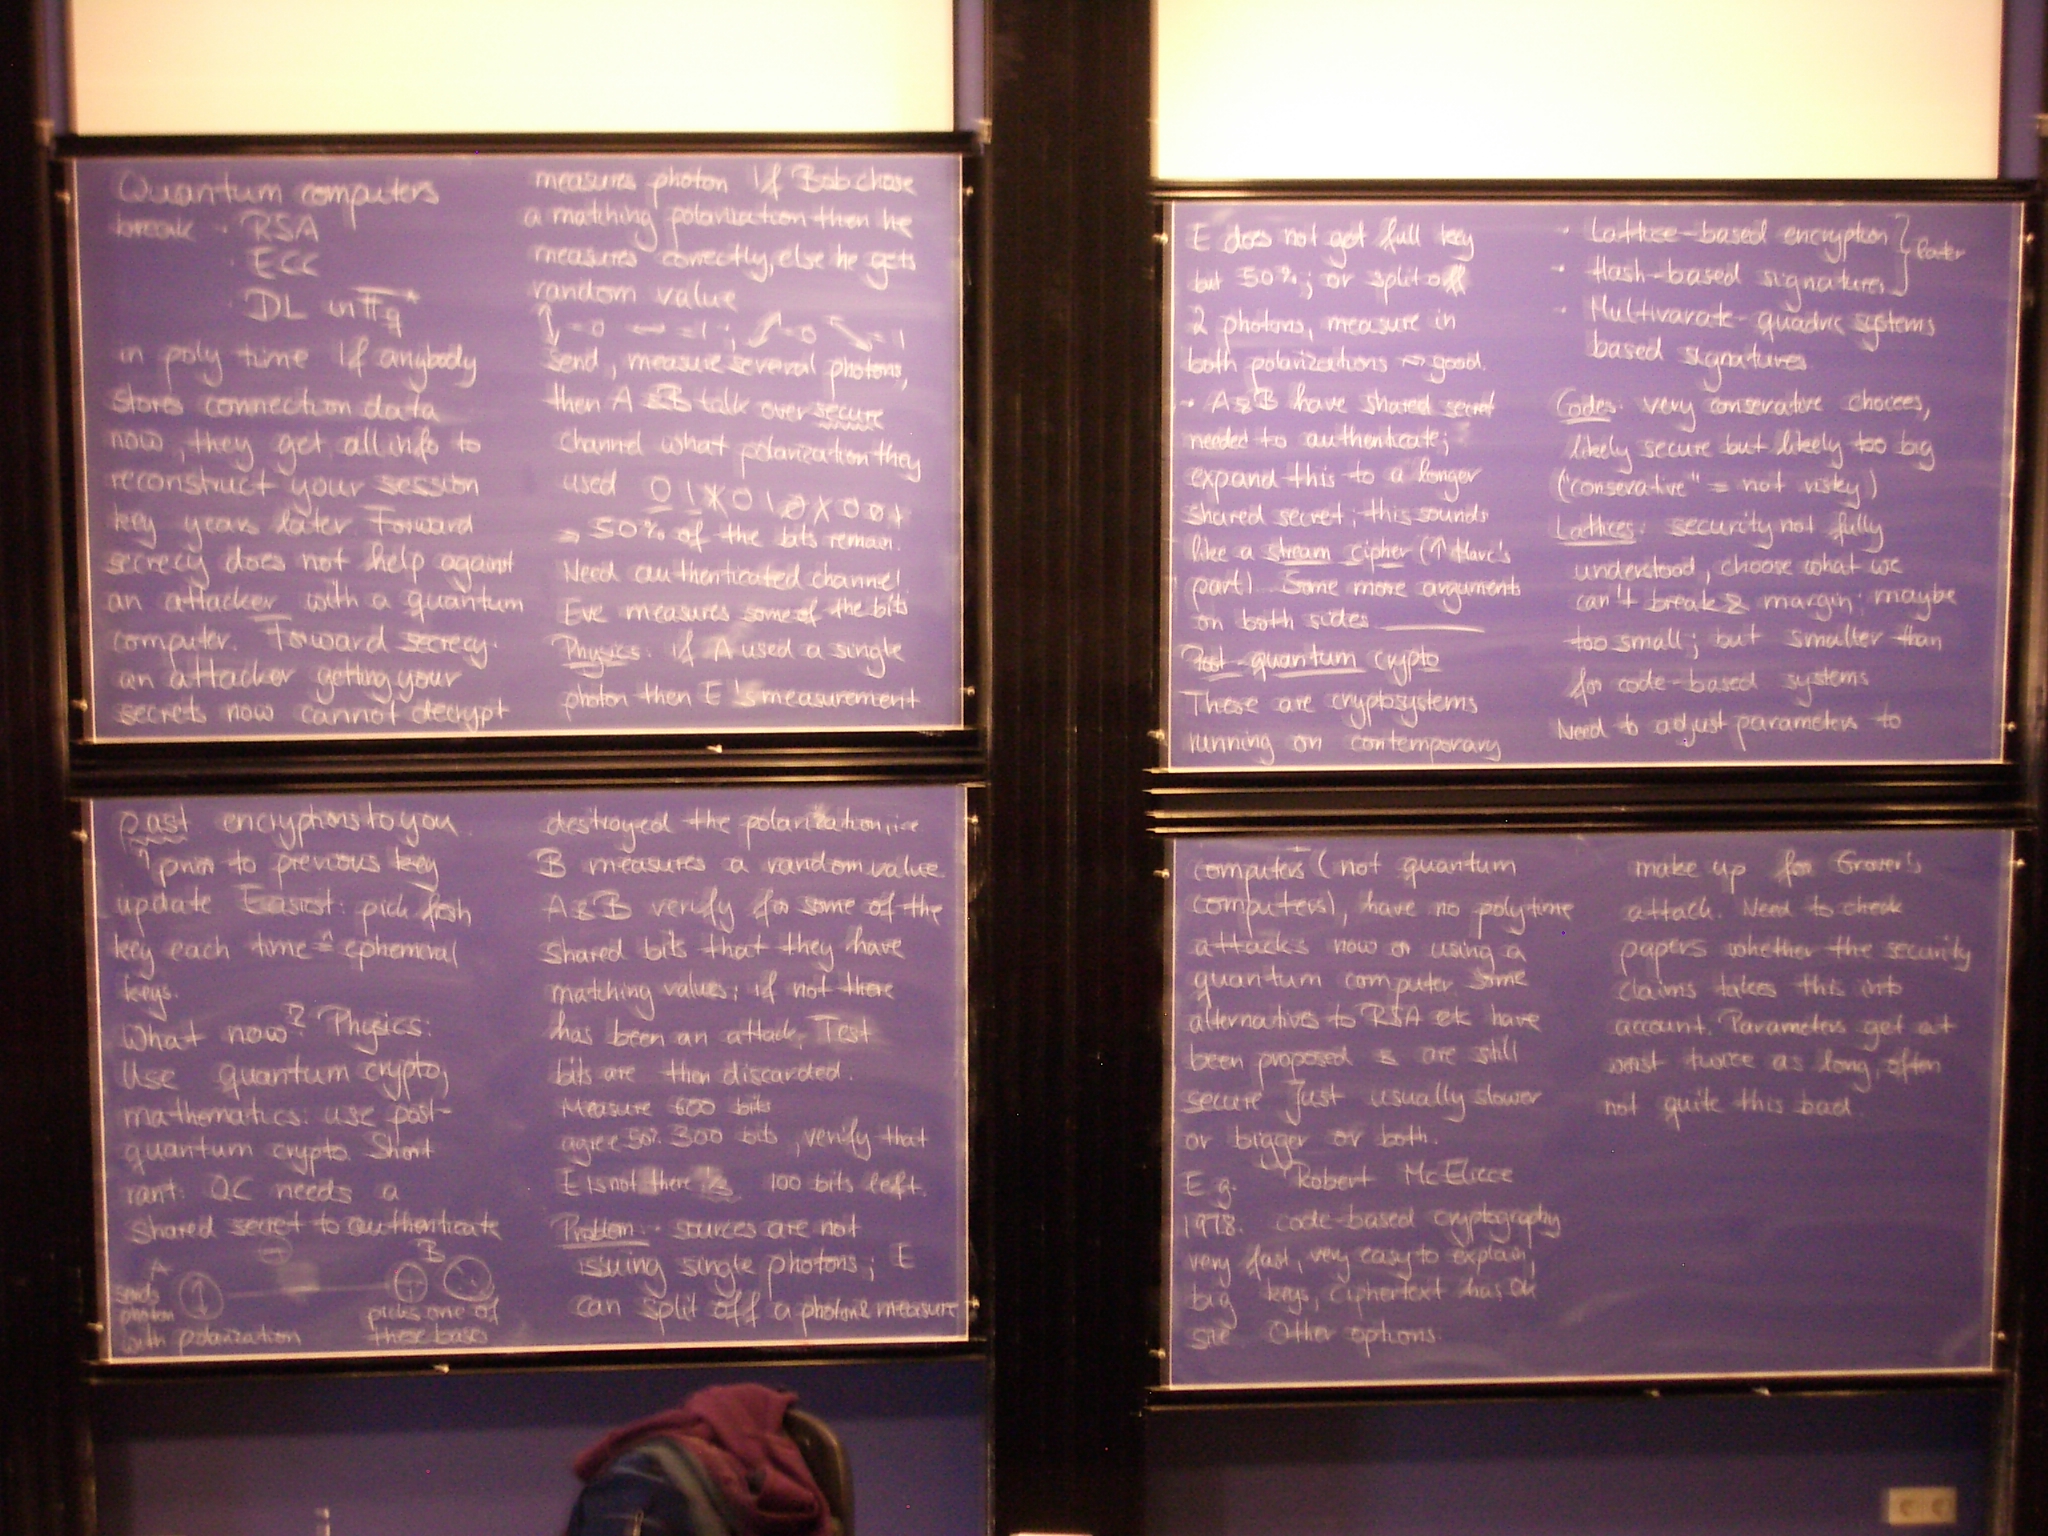 Quantum computers
break · RSA
· ECC
· DL in F_q^*
in poly time if anybody
stores connection data
now, they get all info to
reconstruct your session
key years later. Forward
secrecy does not help against
an attacker with a quantum
computer. Forward secrecy:
an attacker getting your
secrets now cannot decrypt
past encryptions to you.
↑ prior to previous key
update Easiest: pick fresh
key each time ≙ ephemeral
keys.
What now? Physics:
Use quantum crypto;
mathematics: use post-
quantum crypto. Short
rant: QC needs a
shared secret to authenticate
A B
sends
photon picks one of
with polarization these bases
measures photon if Bob chose
a matching polarization then he
measures correctly, else he gets
random value
↕=0 ↔=1; ⤢=0 ⤡=1
send, measure several photons,
then A & B talk over secure
channel what polarization they
used 0 1 X 0 1
→ 50% of the bits remain.
Need authenticated channel
Eve measures some of the bits
Physics: if A used a single
photon then E's measurement
destroyed the polarization, i.e
B measures a random value
A & B verify for some of the
shared bits that they have
matching values; if not there
has been an attack. Test
bits are then discarded.
Measure 600 bits
agree 50% 300 bits, verify that
E is not there 100 bits left.
Problem: · sources are not
issuing single photons; E
can split off a photon & measure
E does not get full key
but 50%; or split off
2 photons, measure in
both polarizations → good.
· A & B have shared secret
needed to authenticate;
expand this to a longer
shared secret; this sounds
like a stream cipher (↑ Marc's
part). Some more arguments
on both sides
Post-quantum crypto
These are cryptosystems
running on contemporary
computers (not quantum
computers), have no polytime
attacks now or using a
quantum computer. Some
alternatives to RSA etc have
been proposed & are still
secure. Just usually slower
or bigger or both.
E.g. Robert McEliece
1978: code-based cryptography
very fast, very easy to explain,
big keys, ciphertext has ok
size. Other options:
· Lattice-based encryption } later
· Hash-based signatures
· Multivarate-quadric systems
based signatures
Codes: very conservative choices,
likely secure but likely too big
("conserative" = not risky)
Lattices: security not fully
understood, choose what we
can't break & margin; maybe
too small; but smaller than
for code-based systems
Need to adjust parameters to
make up for Grover's
attack. Need to check
papers whether the security
claims takes this into
account. Parameters get at
worst twice as long, often
not quite this bad.